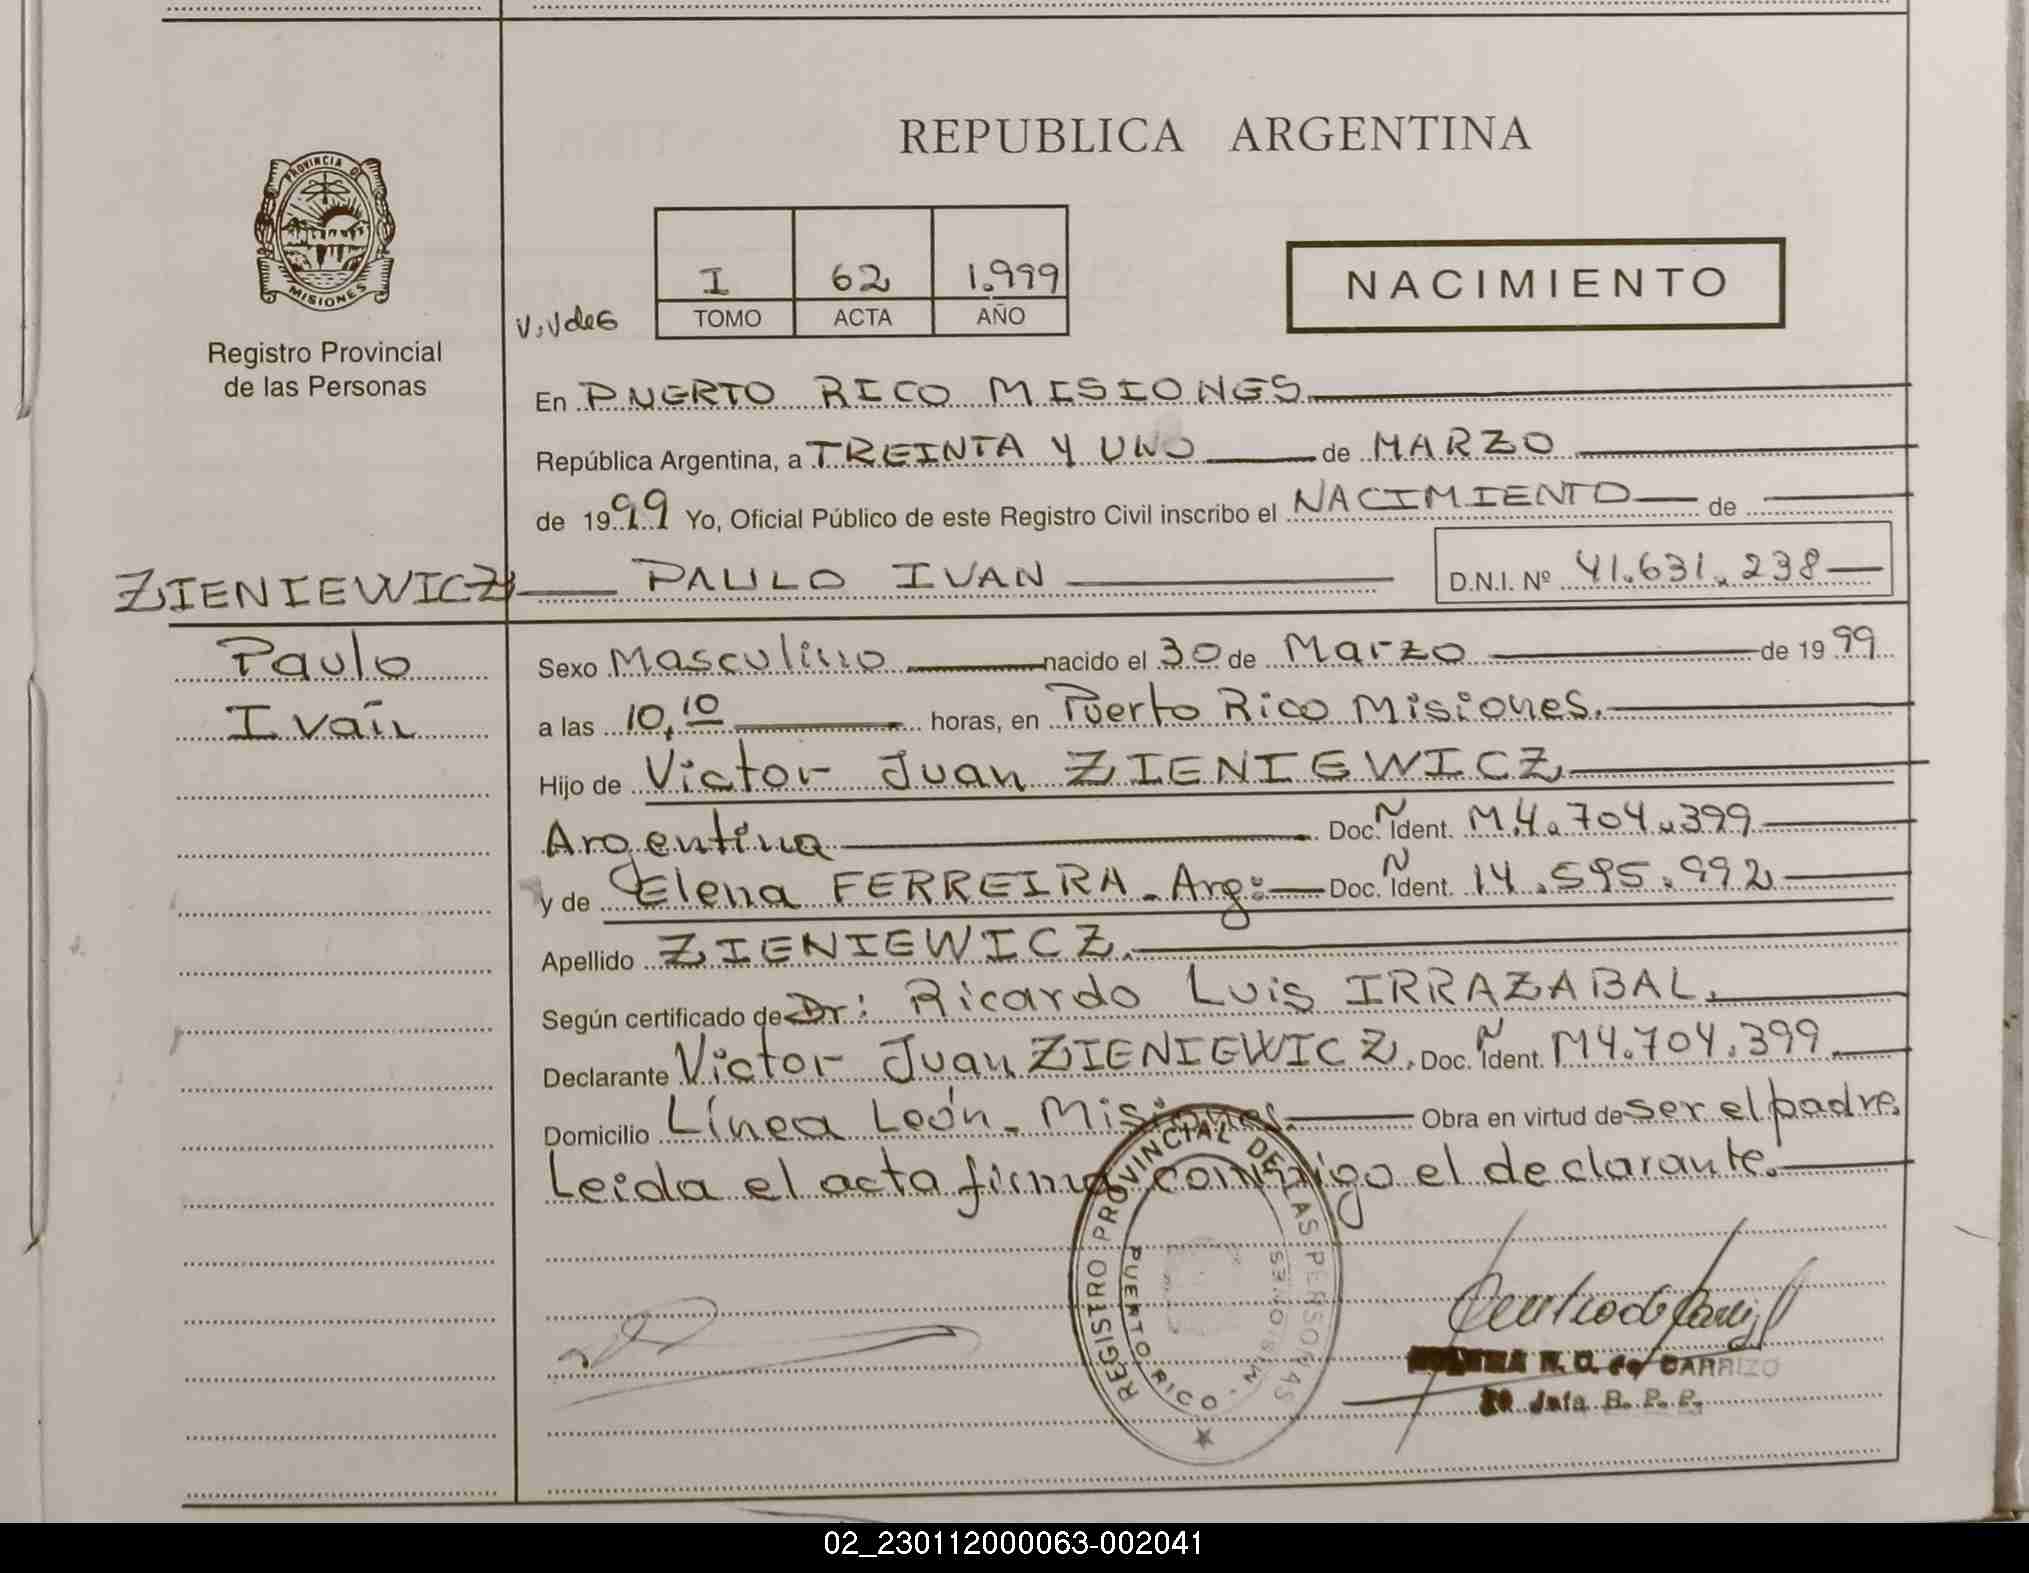 REPUBLICA ARGENTINA
PROVINCIA DE
MISIONES
Registro Provincial
de las Personas
I 62 1.999
TOMO ACTA AÑO
NACIMIENTO
En PUERTO RICO MISIONES
República Argentina, a TREINTA Y UNO de MARZO
de 1999 Yo, Oficial Público de este Registro Civil inscribo el NACIMIENTO de
ZIENIEWICZ PAULO IVAN D.N.I. Nº 41.631.238
Paulo
Iván
Sexo Masculino nacido el 30 de Marzo de 1999
a las 10,10 horas, en Puerto Rico Misiones.
Hijo de Victor Juan ZIENIEWICZ
Argentina Doc. Ident. M.4.704.399
y de Elena FERREIRA - Arg: Doc. Ident. 14.595.992
Apellido ZIENIEWICZ.
Según certificado de Dr: Ricardo Luis IRRAZABAL.
Declarante Victor Juan ZIENIEWICZ. Doc. Ident. M4.704.399
Domicilio Línea León - Misiones. Obra en virtud de ser el padre.
Leida el acta firma conmigo el declarante.
REGISTRO PROVINCIAL DE LAS PERSONAS
PUERTO RICO - MISIONES
N. O. de CARRIZO
Jefa R. P. P.
02_230112000063-002041